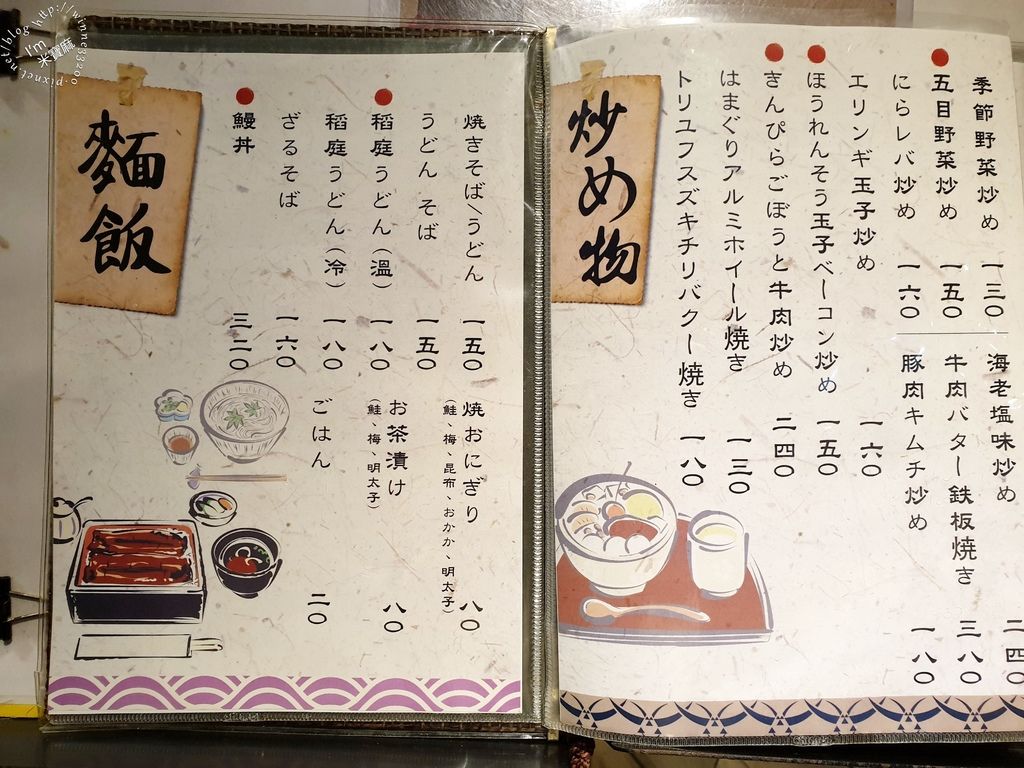 炒め物
季節野菜炒め 一三〇
五目野菜炒め 一五〇
にらレバ炒め 一六〇
エリンギ玉子炒め 一六〇
ほうれんそう玉子ベーコン炒め 一五〇
きんぴらごぼうと牛肉炒め 二四〇
はまぐりアルミホイール焼き 一三〇
トリユフスズキチリバクー焼き 一八〇
海老塩味炒め 二四〇
牛肉バター鉄板焼き 三八〇
豚肉キムチ炒め 一八〇
麵飯
焼きそば\うどん 一五〇
うどん そば 一五〇
稻庭うどん(溫) 一八〇
稻庭うどん(冷) 一八〇
ざるそば 一六〇
鰻丼 三二〇
焼おにぎり 八〇
(鮭、梅、昆布、おかか、明太子)
お茶漬け 八〇
(鮭、梅、明太子)
ごはん 二〇
I'm
米寶麻
http://winne33200.pixnet.net/blog